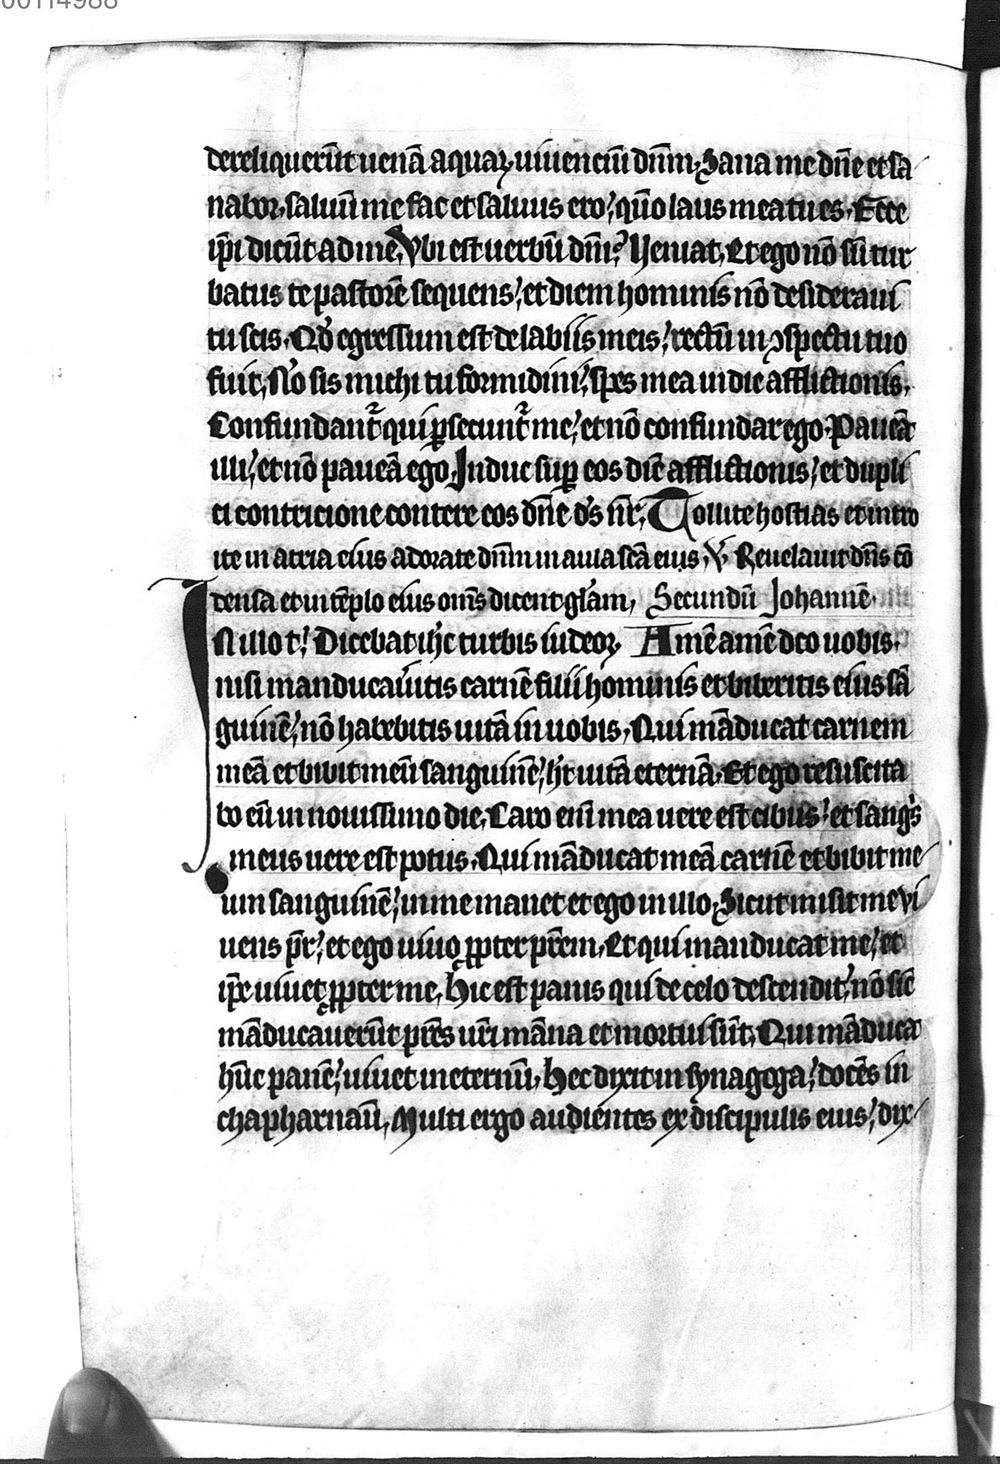 00114988
dereliquerūt uenā aquaꝝ uiuenciū dn̄m. Sana me dn̄e et sa
nabor, saluū me fac et saluus ero, qm̄ laus mea tu es. Ecce
ip̄i dicūt ad me, Vbi est uerbū dn̄i? Veniat, Et ego nō sū tur
batus te pastorē sequens, et diem hominis nō desideraui
tu scis. Qd̓ egressum est de labiis meis, rectū in ꝯspectu tuo
fuit, Nō sis michi tu formidini, spes mea in die afflictionis.
Confundant̄ qui ꝑsecunt̄ me, et nō confundar ego. Paueāt
illi, et nō paueā ego. Induc suꝑ eos diē afflictionis, et dupli
ci contricione contere eos dn̄e ds̄ nr̄, Tollite hostias et intro
ite in atria eius adorate dn̄m in aula sc̄a eius, ℣ Reuelauit dn̄s cō
densa et in tēplo eius om̄s dicent gl̄am, Secundū Johannē.
IN illo t̄, Dicebat ih̄c turbis iudeoꝝ, Amē amē dco uobis.
nisi manducau̓itis carnē filii hominis et biberitis eius sā
guinē, nō habebitis uitā in uobis, Qui māducat carnem
meā et bibit meū sanguinē, h̄t uitā eternā. Et ego resuscita
bo eū in nouissimo die, Caro eni̅ mea uere est cibus, et sang̓s
meus uere est potus, Qui māducat meā carnē et bibit me
um sanguinē, in me manet et ego in illo, Sicut misit me vi
uens pr̄, et ego uiuo ꝓpter pr̄em, Et qui manducat me, et
ip̄e uiuet ꝓpter me, Hic est panis qui de celo descendit, nō sic̄
māducauerūt pr̄es ur̄i māna et mortui sūt, Qui māducat
hūc panē, uiuet in eternū, Hec dixit in synagoga, docēs in
chapharnaū, Multi ergo audientes ex discipulis eius, dix